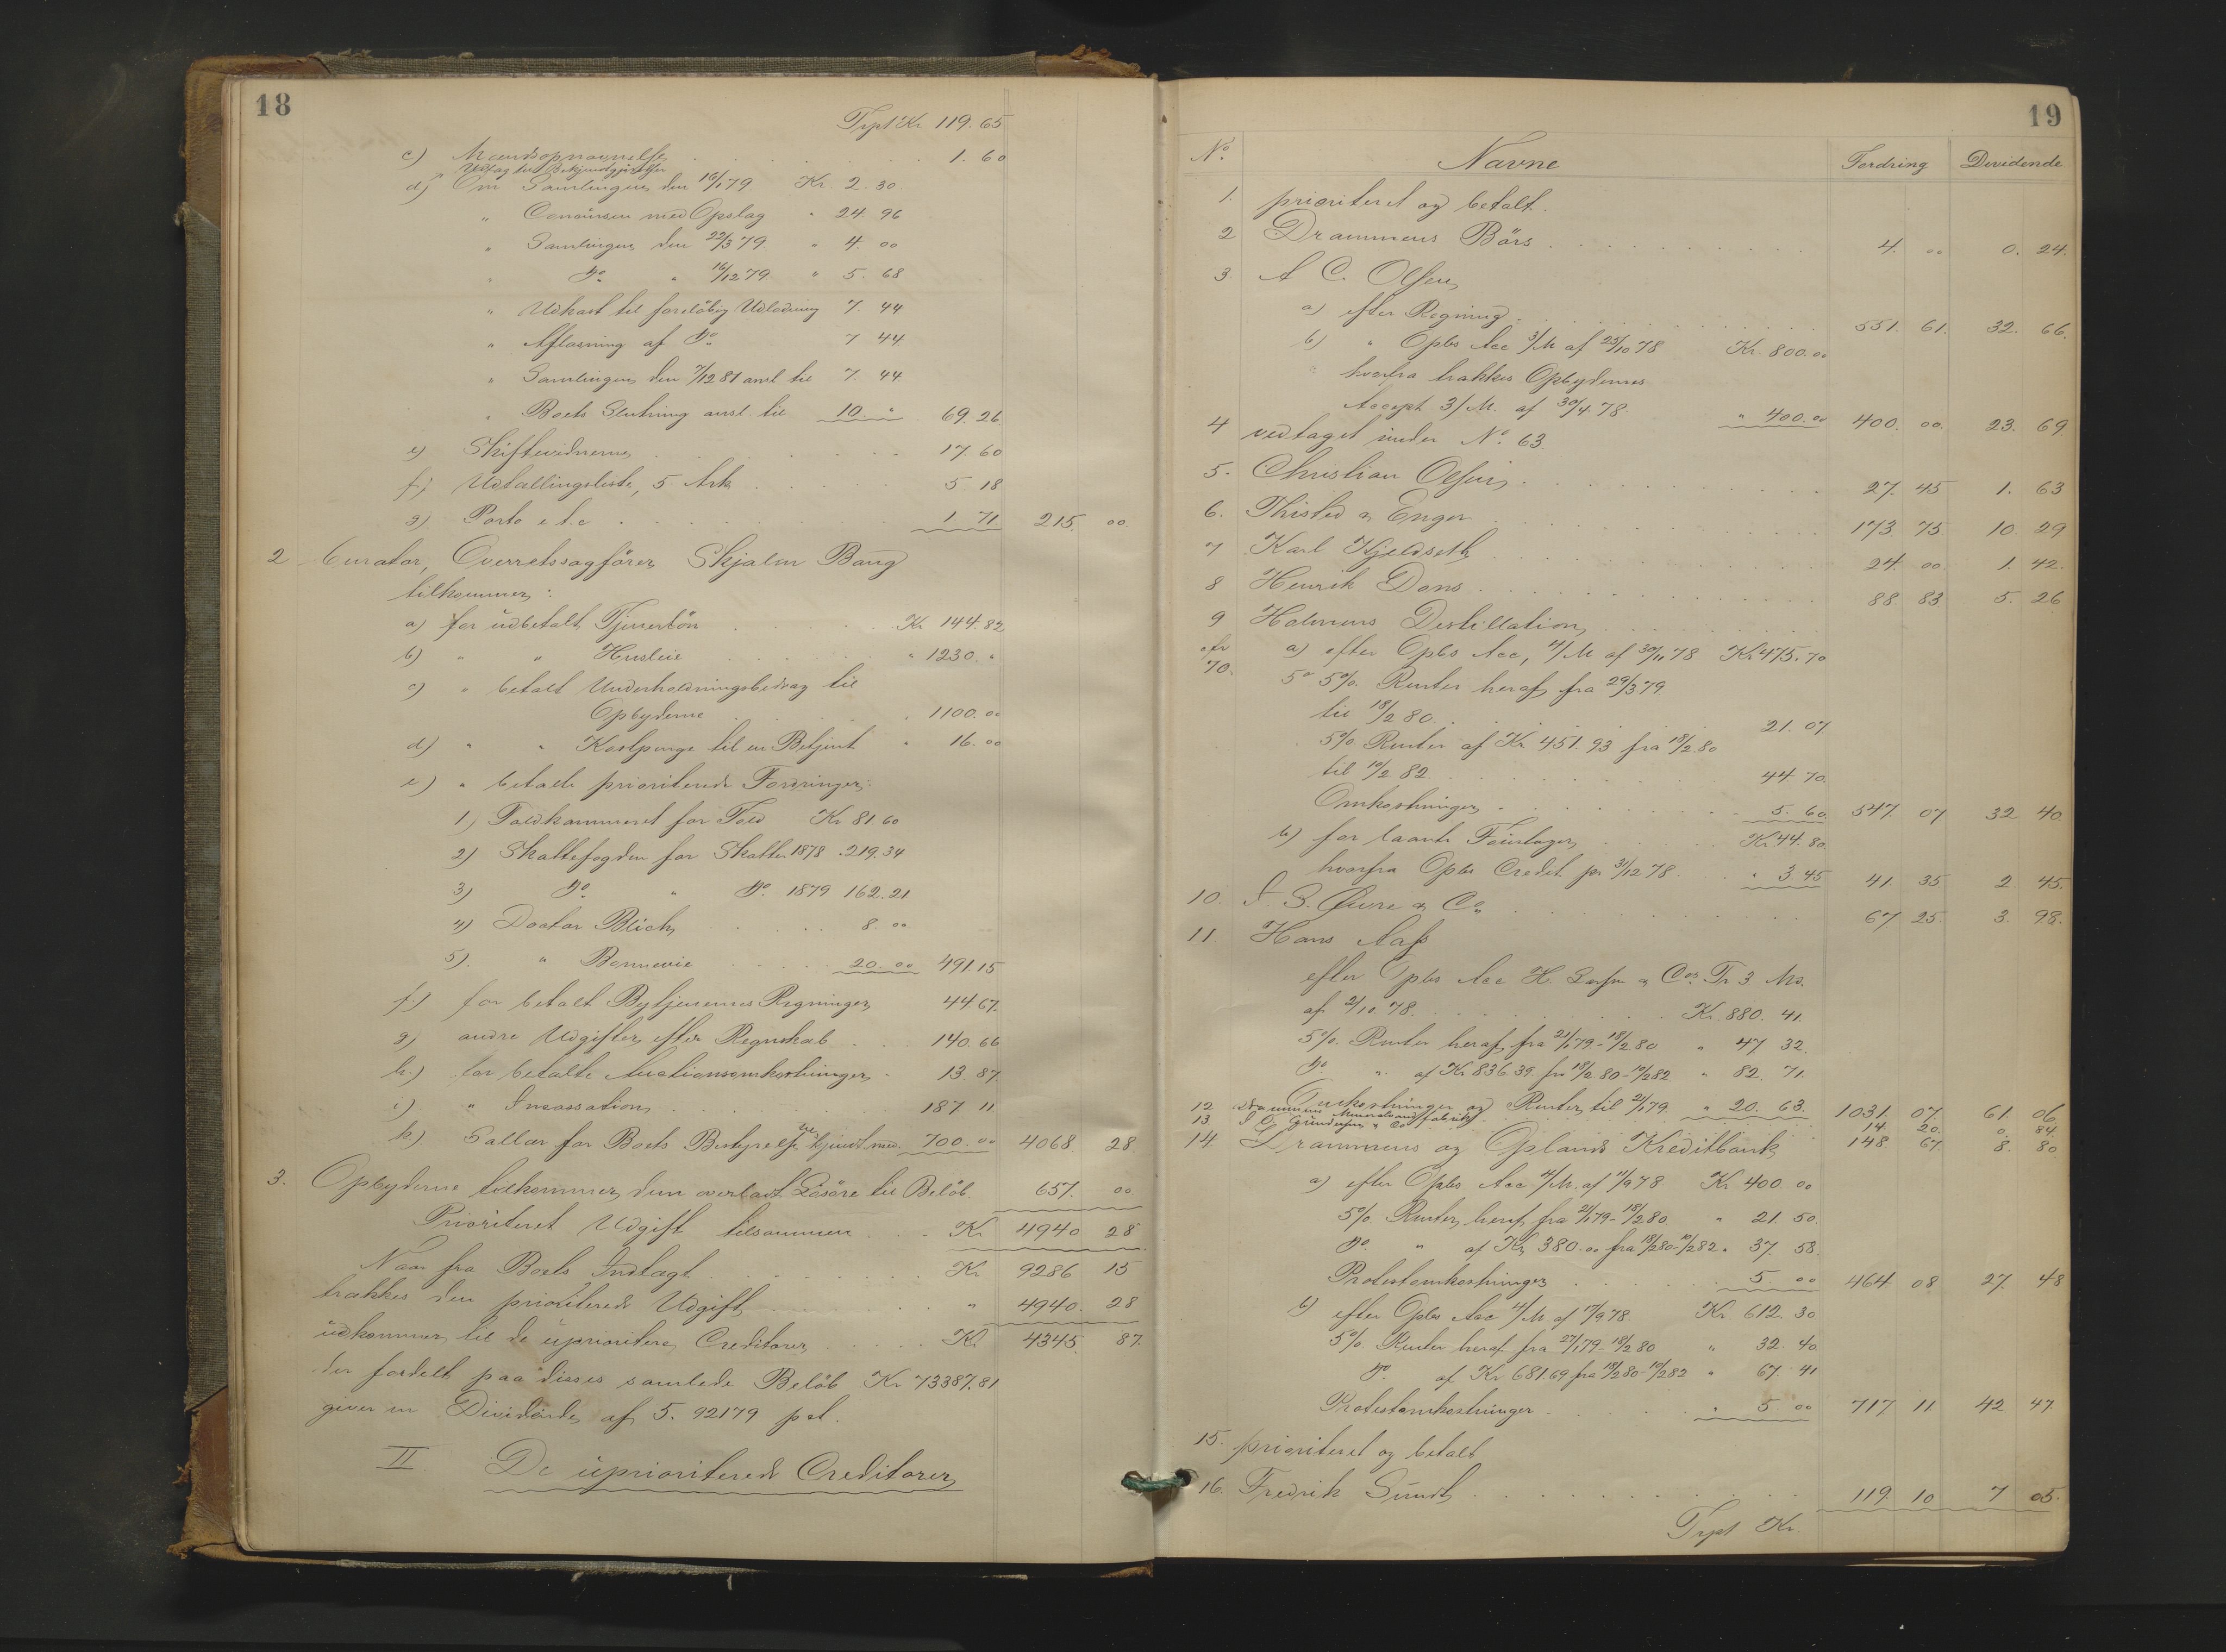 18
Trpt Kr. 119.65
c) Mændsopnævnelse 1.60
Udlæg til Bekjendtgjørelser
d) Om Samlingen den 16/1 79 Kr. 2.30
" med Opslag " 24.96
" Samlingen den 22/3 79 " 4.00
" Do " 16/12 79 " 5.68
" Udkast til foreløbig Udlodning 7.44
" Aflæsning af Do 7 44
" Samlingen den 7/12 81 ansl. til 7.44
" Boets Slutning ansl. til 10. " 69.26
e) Skiftevidnerne 17.60
f) Udtællingsliste, 5 Ark 5.18
g) Porto e.t.c. 1.71 215.00
2 Curator, Overretssagfører Skjalm Bang
tilkommer:
a) for udbetalt Tjenerløn Kr 144.82
b) " " Husleie " 1230. "
c) " betalt Underholdningsbidrag til
Opbyderne 1100.00
d) " " Kostpenge til en Betjent " 16.00
e) " betalte prioriterede Fordringer:
1) Toldkammeret for Told Kr 81.60
2) Skattefogden for Skatter 1878 . 219.34
3) Do " Do 1879 162.21
4) Doctor Blich 8.00
5) " Bonnevie 20.00 491.15
f.) for betalt Bytjenernes Regninger 44 67.
g) andre Udgifter efter Regnskab 140.66
h.) for betalte Auctionsomkostninger 13.87
i) " Incassation 187 11
k) Sallær for Boets Bestyrelse 700.00 4068. 28
3. Opbyderne tilkommer dem overladt Løsøre til Beløb 657. 00
Prioriteret Udgift tilsammen Kr 4940 28
Naar fra Boets Indtægt Kr 9286 15
trækkes den prioriterede Udgift " 4940. 28
udkommer til de uprioritere Creditorer Kr 4345. 87.
der fordelt paa disses samlede Beløb Kr 73387.81
giver en Dividende af 5.92179 pct.
II. De uprioriterede Creditorer
19
No. Navne Fordring Devidende
1. prioriteret og betalt.
2 Drammens Börs 4. 00 0. 24.
3. A C. Olsen
a) efter Regning 551. 61. 32. 66.
b) " Opbs Acc 3/M af 25/10 78 Kr. 800.00
hvorfra trækkes Opbydernes
Accept 3/M. af 30/4 78. " 400.00 400. 00. 23. 69.
4 vedtaget under No. 63.
5. Christian Olsen 27. 45 1. 63
6. Thisted & Enger 173 75 10. 29
7 Karl Kjeldseth 24. 00 1. 42.
8 Henrik Dons 88. 83 5. 26
9 Holmens Destillation
cfr a) efter Opbs Acc, 4/M af 30/11 78 Kr 475.70
70. 5% Renter heraf fra 29/3 79
til 18/2 80. 21.07
5% Renter af Kr 451.93 fra 18/2 80
til 10/2 82 44 70.
Omkostninger 5.60 547. 07 32 40.
b) for laante Foustager Kr. 44.80.
hvorfra Opbs Credit pr 31/12 78 " 3.45 41. 35 2. 45.
10. & Co 67 25. 3. 98.
11. Hans Aass
efter Opbs Acc H. Larsen & Cos Tr. 3 Ms.
af 2/10 78. Kr. 880. 41.
5% Renter heraf fra 21/1 79 - 18/2 80 " 47 32.
Do " af Kr 836 39 fra 18/2 80 - 10/2 82 " 82. 71.
Omkostninger og Renter til 21/1 79. " 20. 63. 1031. 07. 61. 06
12 Drammens Mineralvandfabrik 14. 20. 0. 84.
13. Gundersen & Co 148 67. 8. 80.
14. Drammens og Oplands Kreditbank
a) efter Opbs Acc 4/M. af 11/9 78 Kr 400.00
5% Renter heraf fra 21/1 79 - 18/2 80 " 21. 50.
Do " af Kr 380.00 fra 18/2 80 - 10/2 82 " 37. 58.
Protestomkostninger 5. 00 464. 08 27. 48
b) efter Opbs Acc 4/M af 17/9 78. Kr 612. 30
5% Renter heraf fra 27/1 79 - 18/2 80 " 32. 40.
Do af Kr 681 69 fra 18/2 80 - 10/2 82 " 67. 41
Protestomkostninger " 5. 00 717 11. 42 47.
15. prioriteret og betalt
16. Fredrik Sundt 119. 10 7 05.
Trpt Kr.